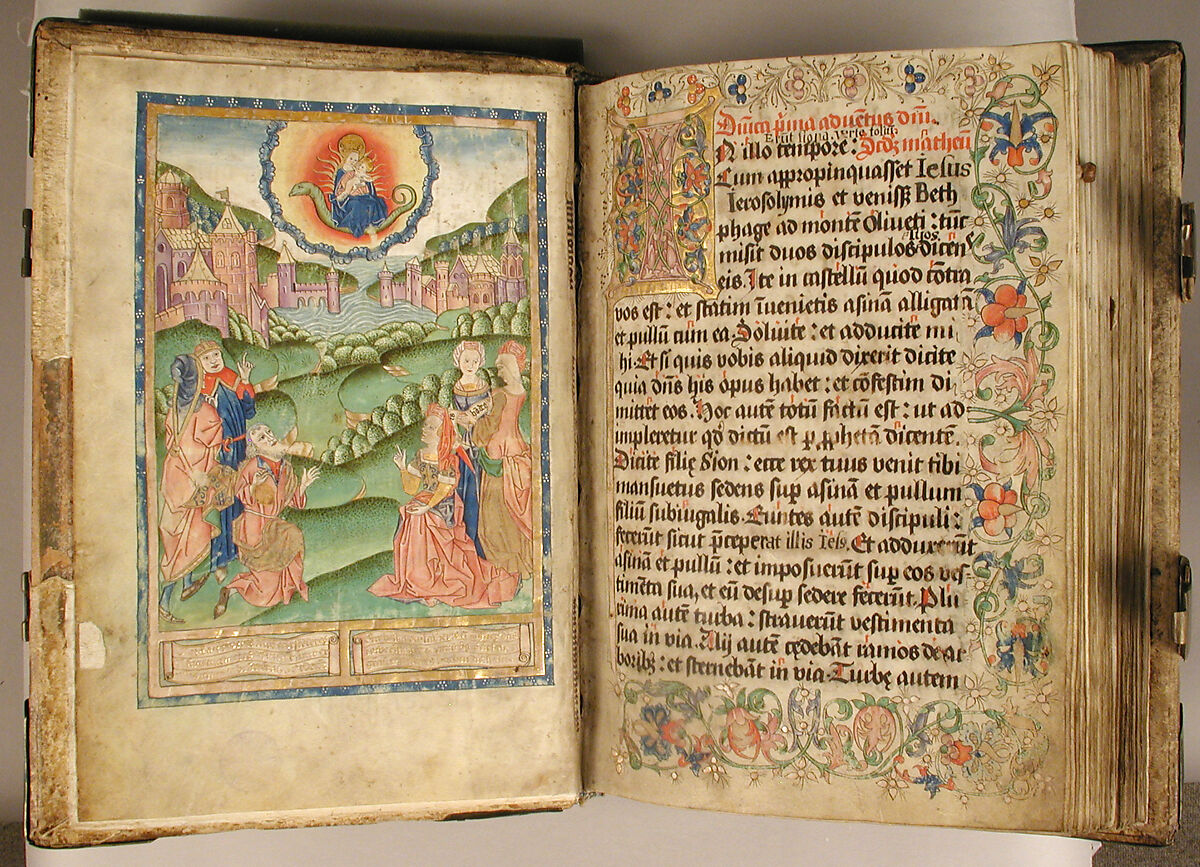 Dn̄ica p̄ma aduētus dn̄i.
Erūt signa
N illo tempore: Scdȝ matheū
Cum appropinquasset Iesus
Ierosolymis et venisset Beth
phage ad montē Oliueti: tūc
misit duos discipulos dicens
eis. Ite in castellū quod cōtra
vos est: et statim īuenietis asinā alligatā
et pullū cum ea. Soluite: et adducite mi
hi. Et si quis vobis aliquid dixerit dicite
quia dn̄s his opus habet: et cōfestim di
mittet eos. Hoc autē totū factū est: ut ad
impleretur qd̄ dictū est p̱ ꝓphetā dicentē.
Dicite filię Sion: ecce rex tuus venit tibi
mansuetus sedens sup̱ asinā et pullum
filiū subiugalis. Euntes autē discipuli:
fecerūt sicut p̄ceperat illis Iesꝰ. Et adduxerūt
asinā et pullū: et imposuerūt sup̱ eos ves-
timēta sua, et eū desup̱ sedere fecerūt. Plu
rima autē turba: strauerūt vestimenta
sua in via. Alij autē cędebāt ramos de ar
boribȝ: et sternebāt in via. Turbę autem